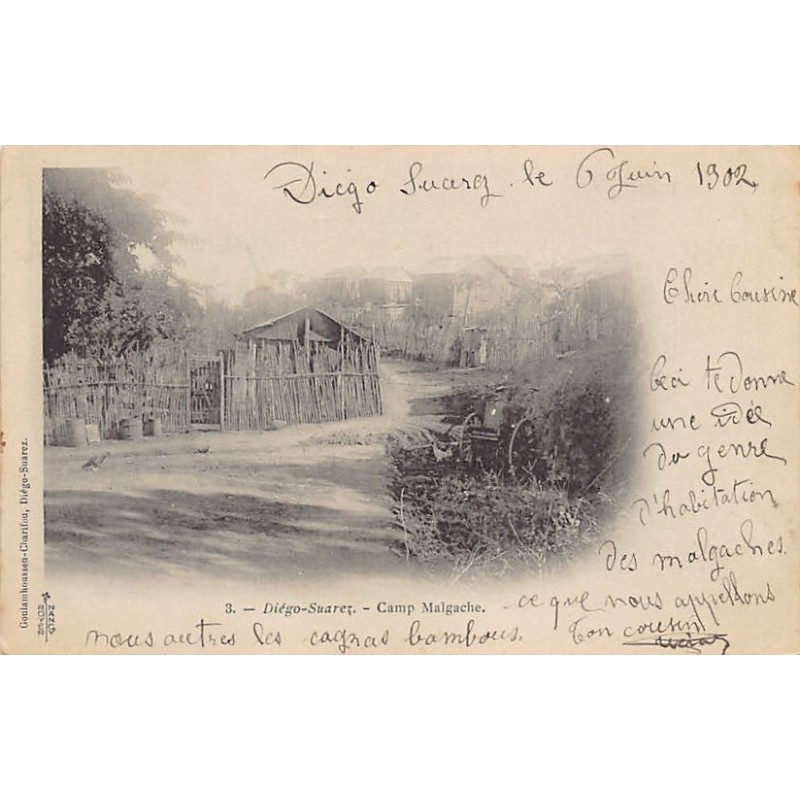 Diégo Suarez. le 6 Juin 1902
Chère Cousine
Ceci te donne
une idée
du genre
d'habitation
des malgaches.
3. — Diégo-Suarez. - Camp Malgache.
ce que nous appellons
nous autres les cagnas bambous.
Ton cousin
Goulamhoussen-Charifou, Diégo-Suarez.